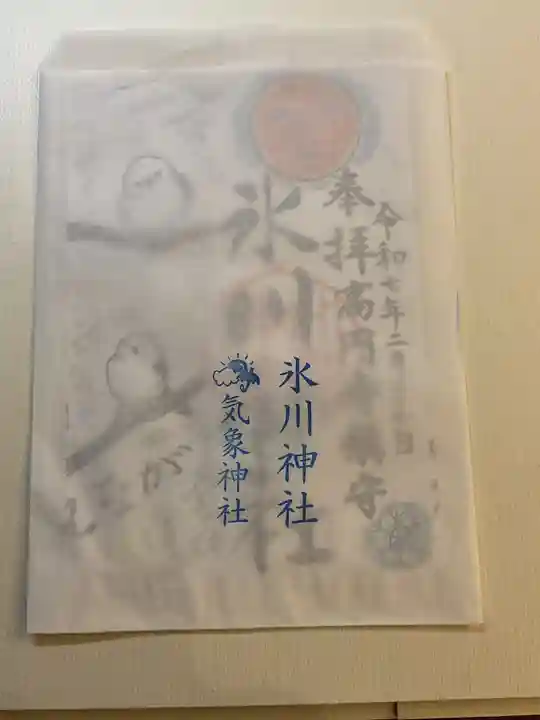 令和七年二月
奉拝 高円寺鎮守
氷川
社
が
氷川神社
気象神社